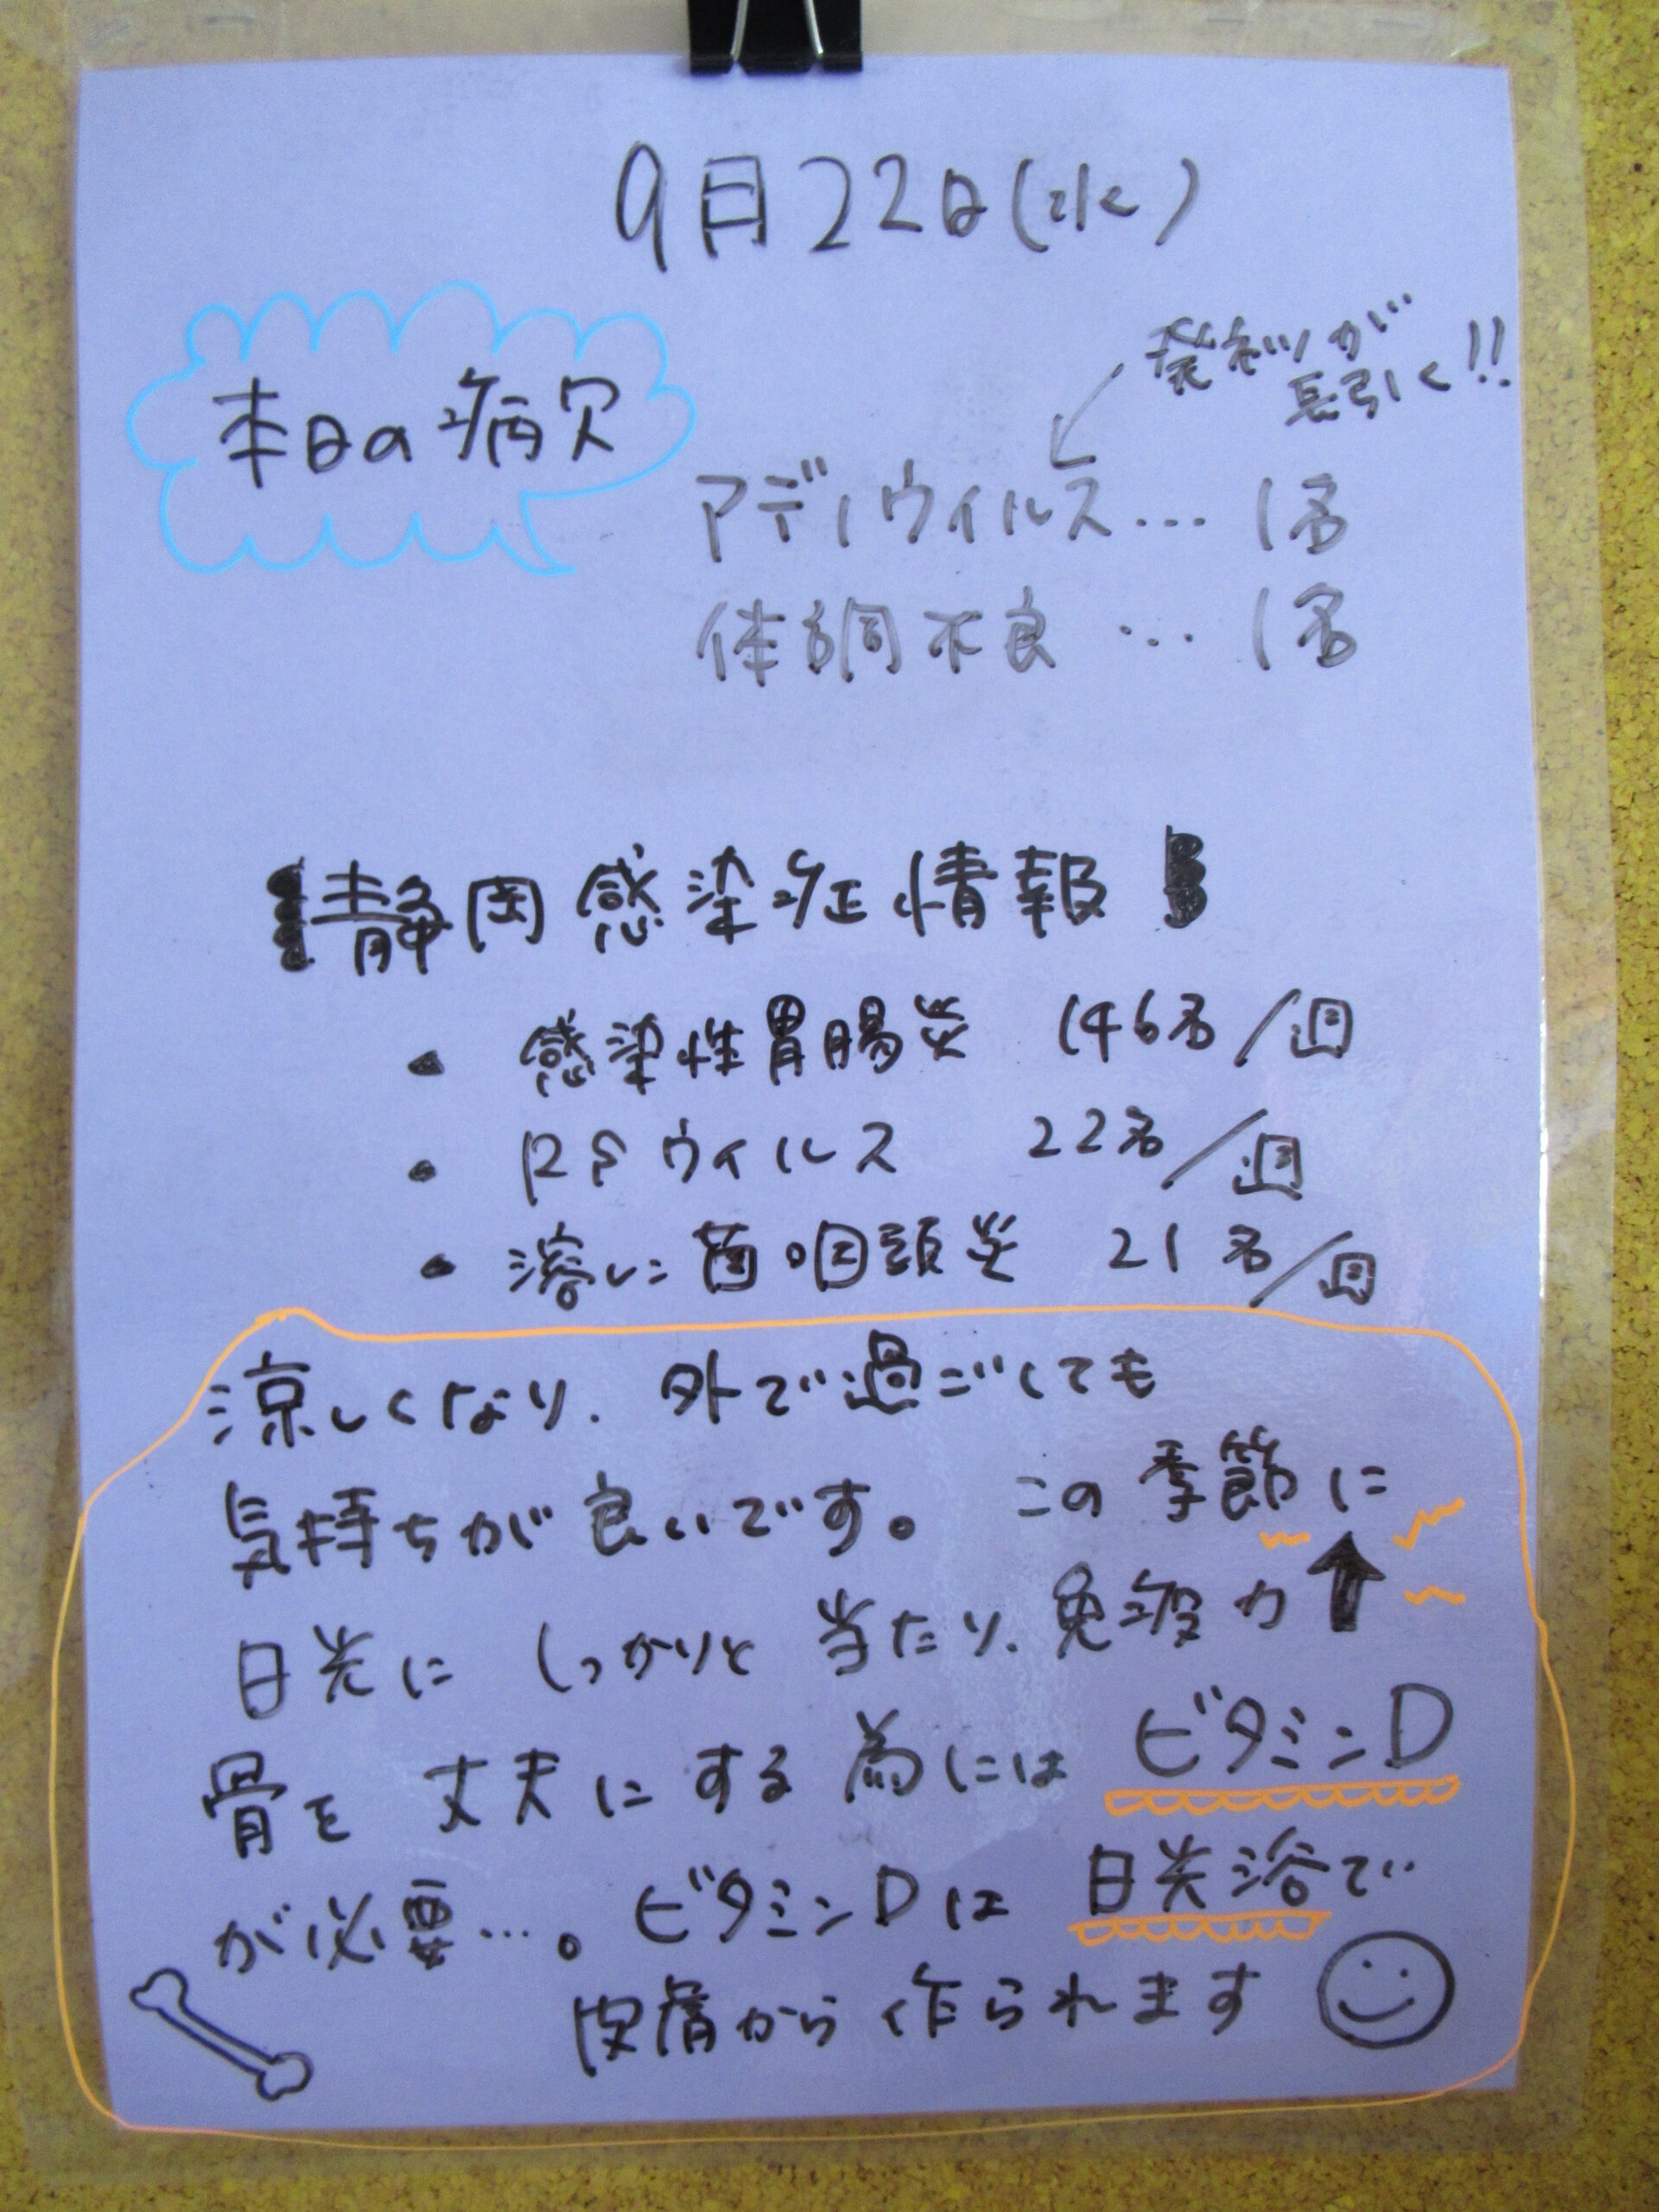 9月22日(水)
本日の病欠
発熱が
長引く!!
アデノウィルス… 1名
体調不良 … 1名
静岡感染症情報
・ 感染性胃腸炎 146名/週
・ RSウィルス 22名/週
・ 溶レン菌咽頭炎 21名/週
涼しくなり、外で過ごしても
気持ちが良いです。この季節に
日光にしっかりと当たり、免疫力↑
骨を丈夫にする為にはビタミンD
が必要…。ビタミンDは日光浴で
皮膚から作られます